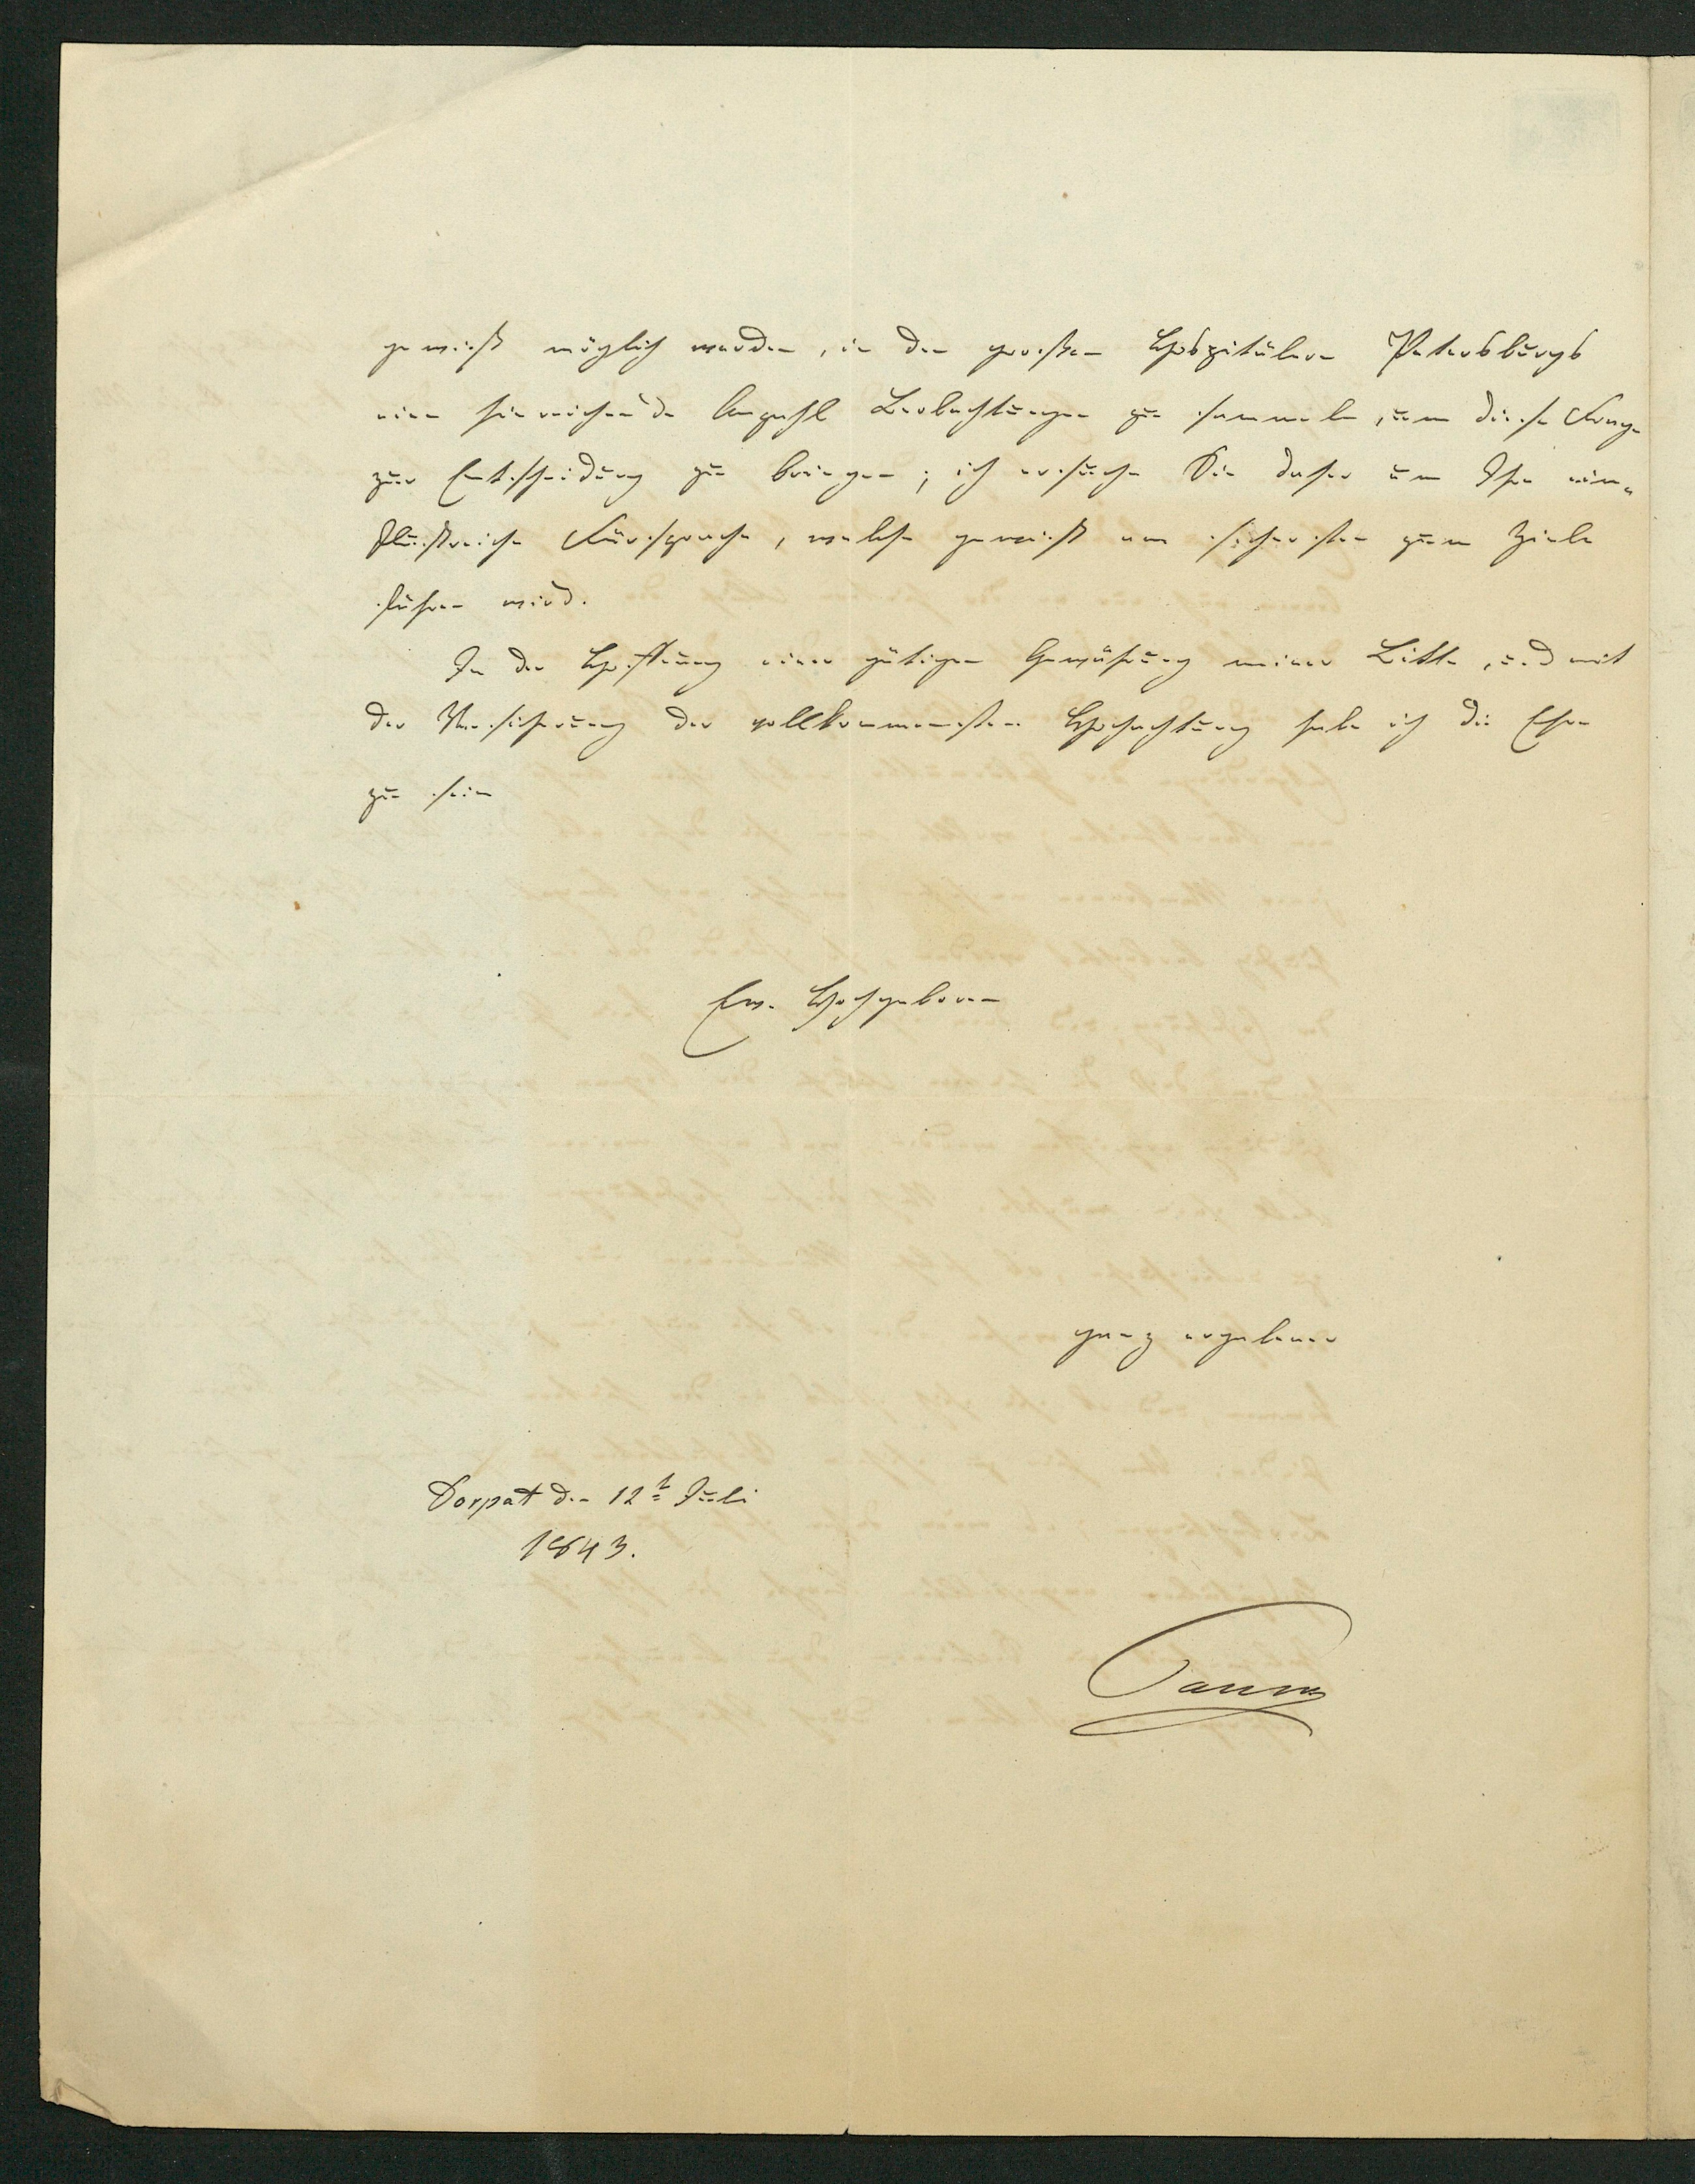 gewiß möglich werden, in den großen Hospitälern Petersburgs
eine hinreichende Anzahl Beobachtungen zu sammeln, um diese Frage
zur Entscheidung zu bringen; ich ersuche Sie daher um Ihre ein-
flußreiche Fürsprache, welche gewiß am sichersten zum Ziele
führen wird.
In der Hoffnung einer gütigen Gewährung meiner Bitte, und mit
der Versicherung der vollkommensten Hochachtung habe ich die Ehre
zu sein
Ew. Hochgeboren
ganz ergebener
Dorpat den 12t Juli
1843.